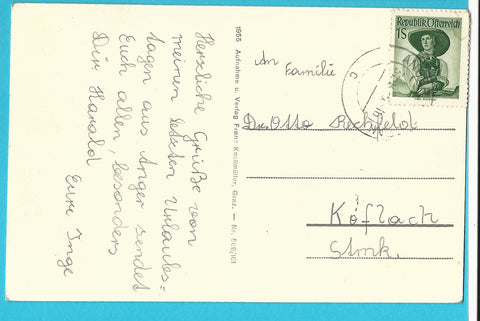 Herzliche Grüße von
meinen letzten Urlaubs-
tagen aus Anger sendet
Euch allen, besonders
Dir Harald
Eure Inge
1955 Aufnahme u. Verlag Franz Knollmüller, Graz. — Nr.
Republik Österreich
1S
An Familie
Dr. Otto Rechfeld
Köflach
Stmk.